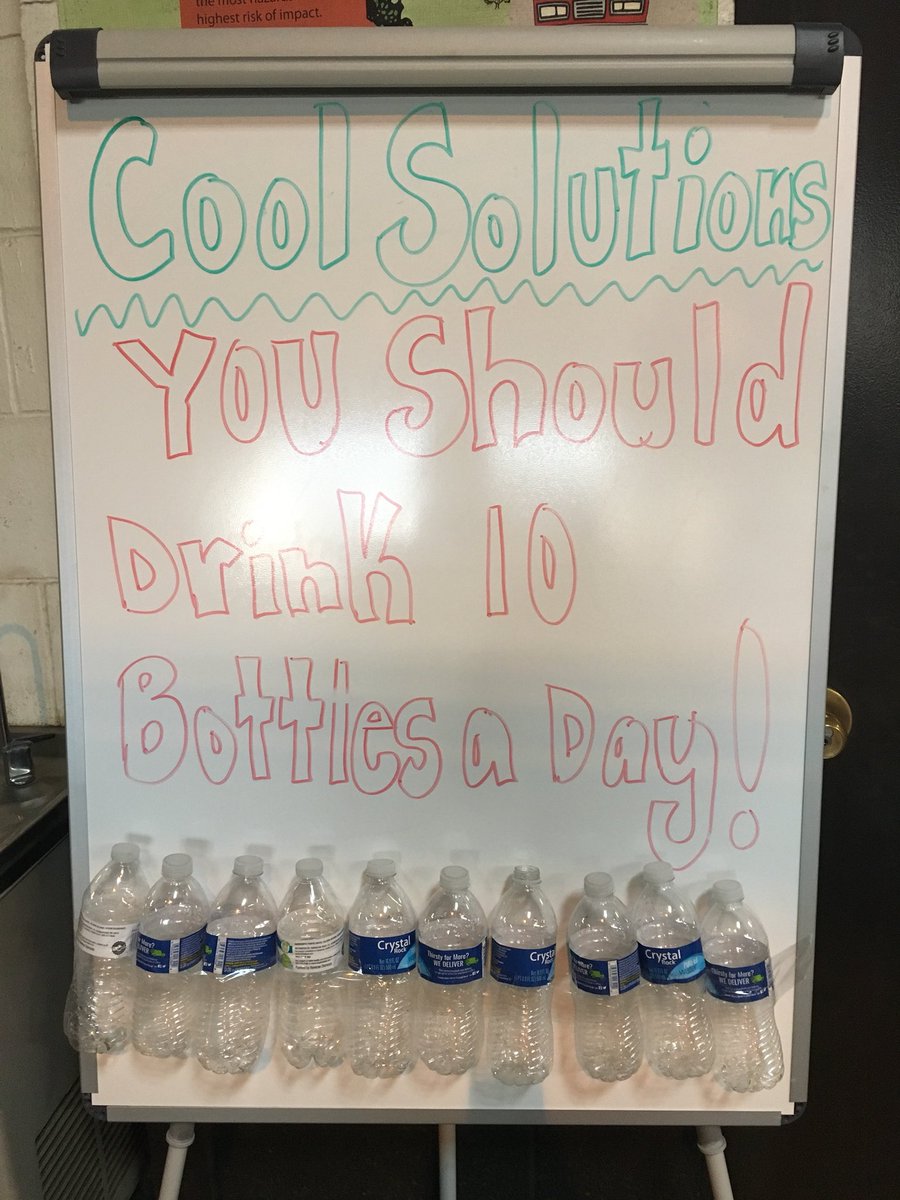 the most hazar
highest risk of impact.
Cool Solutions
You Should
Drink 10
Bottles a Day!
for More?
DELIVER
Crystal
Rock
Thirsty for More?
WE DELIVER
Crysta
Rock
Crystal
Rock
Thirsty for More?
WE DELIVER